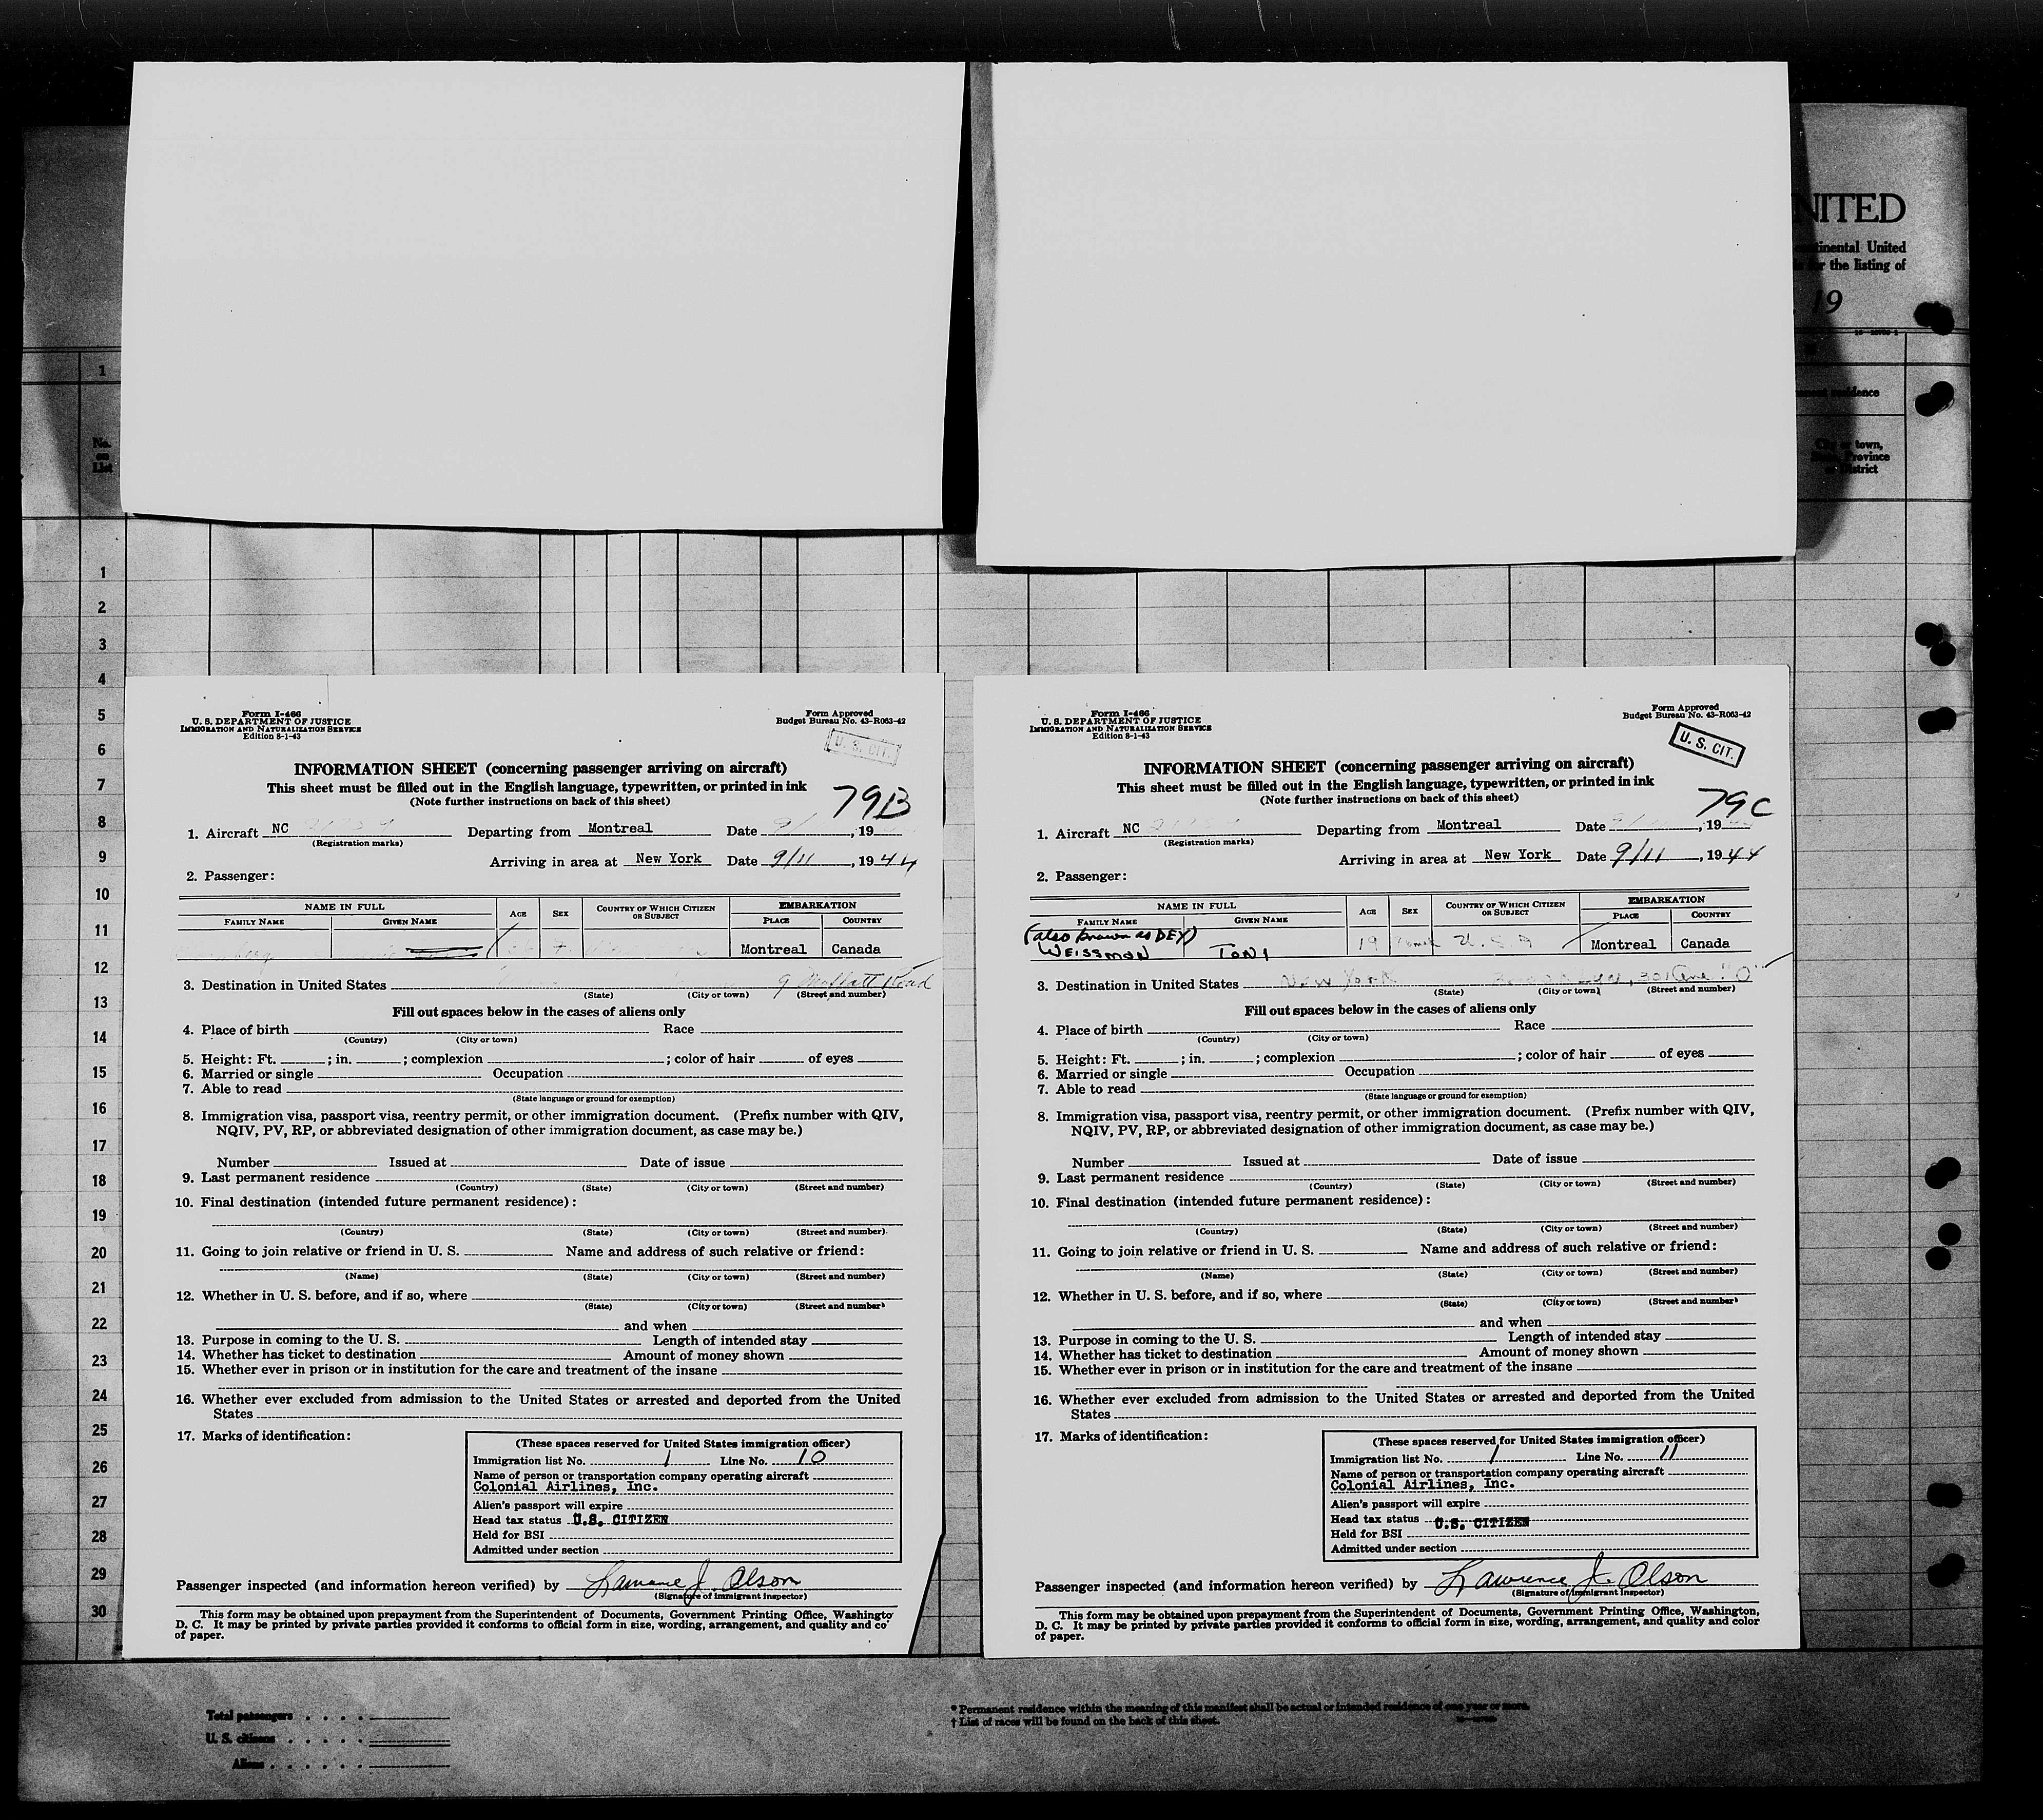 NITED
ntinental United
for the listing of
19
1
No.
on
List
residence
City or town,
Province
or District
1
2
3
4
5
6
7
8
9
10
11
12
13
14
15
16
17
18
19
20
21
22
23
24
25
26
27
28
29
30
Form I-466
U. S. DEPARTMENT OF JUSTICE
IMMIGRATION AND NATURALIZATION SERVICE
Edition 8-1-43
Form Approved
Budget Bureau No. 43-R063-42
U. S. CIT.
INFORMATION SHEET (concerning passenger arriving on aircraft)
This sheet must be filled out in the English language, typewritten, or printed in ink
(Note further instructions on back of this sheet)
79B
1. Aircraft NC Departing from Montreal Date 9/ , 19
(Registration marks)
Arriving in area at New York Date 9/11, 1944
2. Passenger:
NAME IN FULL
FAMILY NAME GIVEN NAME AGE SEX COUNTRY OF WHICH CITIZEN OR SUBJECT
EMBARKATION
PLACE COUNTRY
Montreal Canada
3. Destination in United States 9 Moffatt Road
(State) (City or town) (Street and number)
Fill out spaces below in the cases of aliens only
4. Place of birth Race
(Country) (City or town)
5. Height: Ft. ; in. ; complexion ; color of hair of eyes
6. Married or single Occupation
7. Able to read
(State language or ground for exemption)
8. Immigration visa, passport visa, reentry permit, or other immigration document. (Prefix number with QIV,
NQIV, PV, RP, or abbreviated designation of other immigration document, as case may be.)
Number Issued at Date of issue
9. Last permanent residence
(Country) (State) (City or town) (Street and number)
10. Final destination (intended future permanent residence):
(Country) (State) (City or town) (Street and number)
11. Going to join relative or friend in U. S. Name and address of such relative or friend:
(Name) (State) (City or town) (Street and number)
12. Whether in U. S. before, and if so, where
(State) (City or town) (Street and number)
and when
13. Purpose in coming to the U. S. Length of intended stay
14. Whether has ticket to destination Amount of money shown
15. Whether ever in prison or in institution for the care and treatment of the insane
16. Whether ever excluded from admission to the United States or arrested and deported from the United
States
17. Marks of identification:
(These spaces reserved for United States immigration officer)
Immigration list No. 1 Line No. 10
Name of person or transportation company operating aircraft
Colonial Airlines, Inc.
Alien's passport will expire
Head tax status U.S. CITIZEN
Held for BSI
Admitted under section
Passenger inspected (and information hereon verified) by Lawrence J. Olson
(Signature of Immigrant Inspector)
This form may be obtained upon prepayment from the Superintendent of Documents, Government Printing Office, Washingto
D. C. It may be printed by private parties provided it conforms to official form in size, wording, arrangement, and quality and co
of paper.
Form I-466
U. S. DEPARTMENT OF JUSTICE
IMMIGRATION AND NATURALIZATION SERVICE
Edition 8-1-43
Form Approved
Budget Bureau No. 43-R063-42
U. S. CIT.
INFORMATION SHEET (concerning passenger arriving on aircraft)
This sheet must be filled out in the English language, typewritten, or printed in ink
(Note further instructions on back of this sheet)
79C
1. Aircraft NC Departing from Montreal Date , 19
(Registration marks)
Arriving in area at New York Date 9/11, 1944
2. Passenger:
NAME IN FULL
FAMILY NAME GIVEN NAME AGE SEX COUNTRY OF WHICH CITIZEN OR SUBJECT
EMBARKATION
PLACE COUNTRY
(also known as DEY)
WEISSMAN TONI 19 U.S.A Montreal Canada
3. Destination in United States New York 301 Ave "O"
(State) (City or town) (Street and number)
Fill out spaces below in the cases of aliens only
4. Place of birth Race
(Country) (City or town)
5. Height: Ft. ; in. ; complexion ; color of hair of eyes
6. Married or single Occupation
7. Able to read
(State language or ground for exemption)
8. Immigration visa, passport visa, reentry permit, or other immigration document. (Prefix number with QIV,
NQIV, PV, RP, or abbreviated designation of other immigration document, as case may be.)
Number Issued at Date of issue
9. Last permanent residence
(Country) (State) (City or town) (Street and number)
10. Final destination (intended future permanent residence):
(Country) (State) (City or town) (Street and number)
11. Going to join relative or friend in U. S. Name and address of such relative or friend:
(Name) (State) (City or town) (Street and number)
12. Whether in U. S. before, and if so, where
(State) (City or town) (Street and number)
and when
13. Purpose in coming to the U. S. Length of intended stay
14. Whether has ticket to destination Amount of money shown
15. Whether ever in prison or in institution for the care and treatment of the insane
16. Whether ever excluded from admission to the United States or arrested and deported from the United
States
17. Marks of identification:
(These spaces reserved for United States immigration officer)
Immigration list No. 1 Line No. 11
Name of person or transportation company operating aircraft
Colonial Airlines, Inc.
Alien's passport will expire
Head tax status U.S. CITIZEN
Held for BSI
Admitted under section
Passenger inspected (and information hereon verified) by Lawrence J. Olson
(Signature of Immigrant Inspector)
This form may be obtained upon prepayment from the Superintendent of Documents, Government Printing Office, Washington,
D. C. It may be printed by private parties provided it conforms to official form in size, wording, arrangement, and quality and color
of paper.
Total passengers
U. S. citizens
Aliens
* Permanent residence within the meaning of this manifest shall be actual or intended residence of one year or more.
† List of races will be found on the back of this sheet.